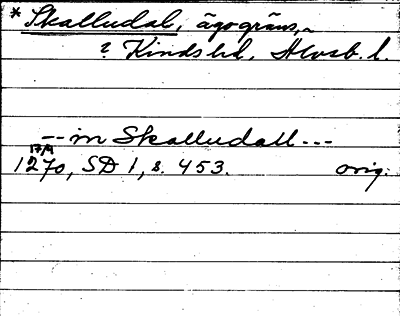 * Skalludal, ägogräns,
? Kinds hd, Älvsb. l.
-- in Skalludall ---
17/9
1270, SD 1, s. 453. orig.